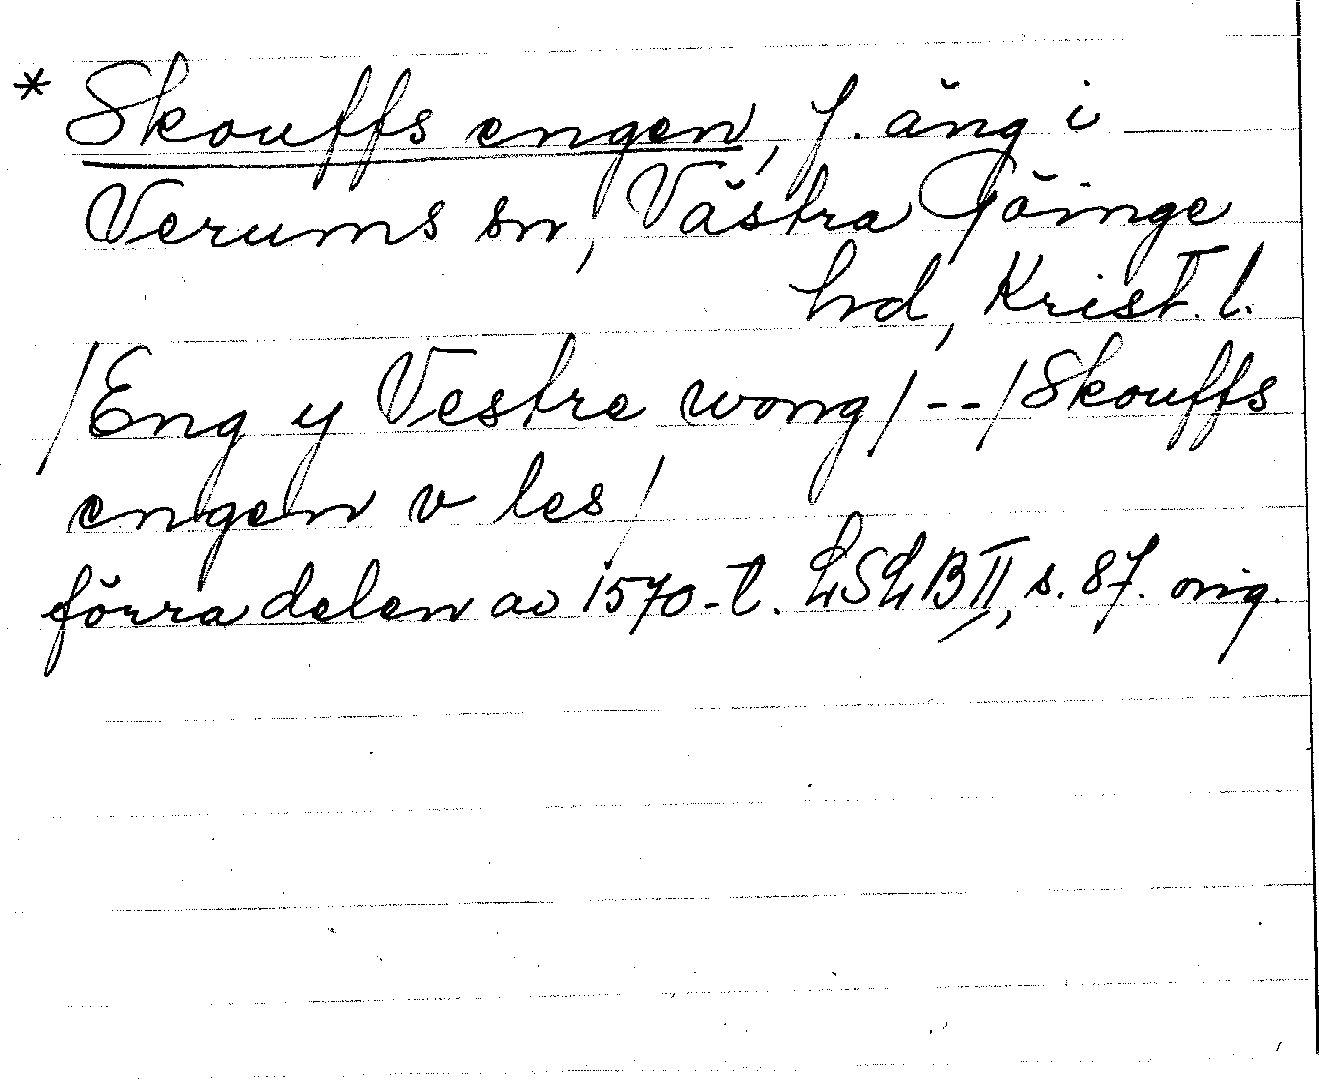 * Skouffs engen, f. äng i
Verums sn, Västra Göinge
hrd, Krist. l.
/Eng y Vestre wong/--/Skouffs
engen v les/
förra delen av 1570-t. LSLB II, s. 87. orig.